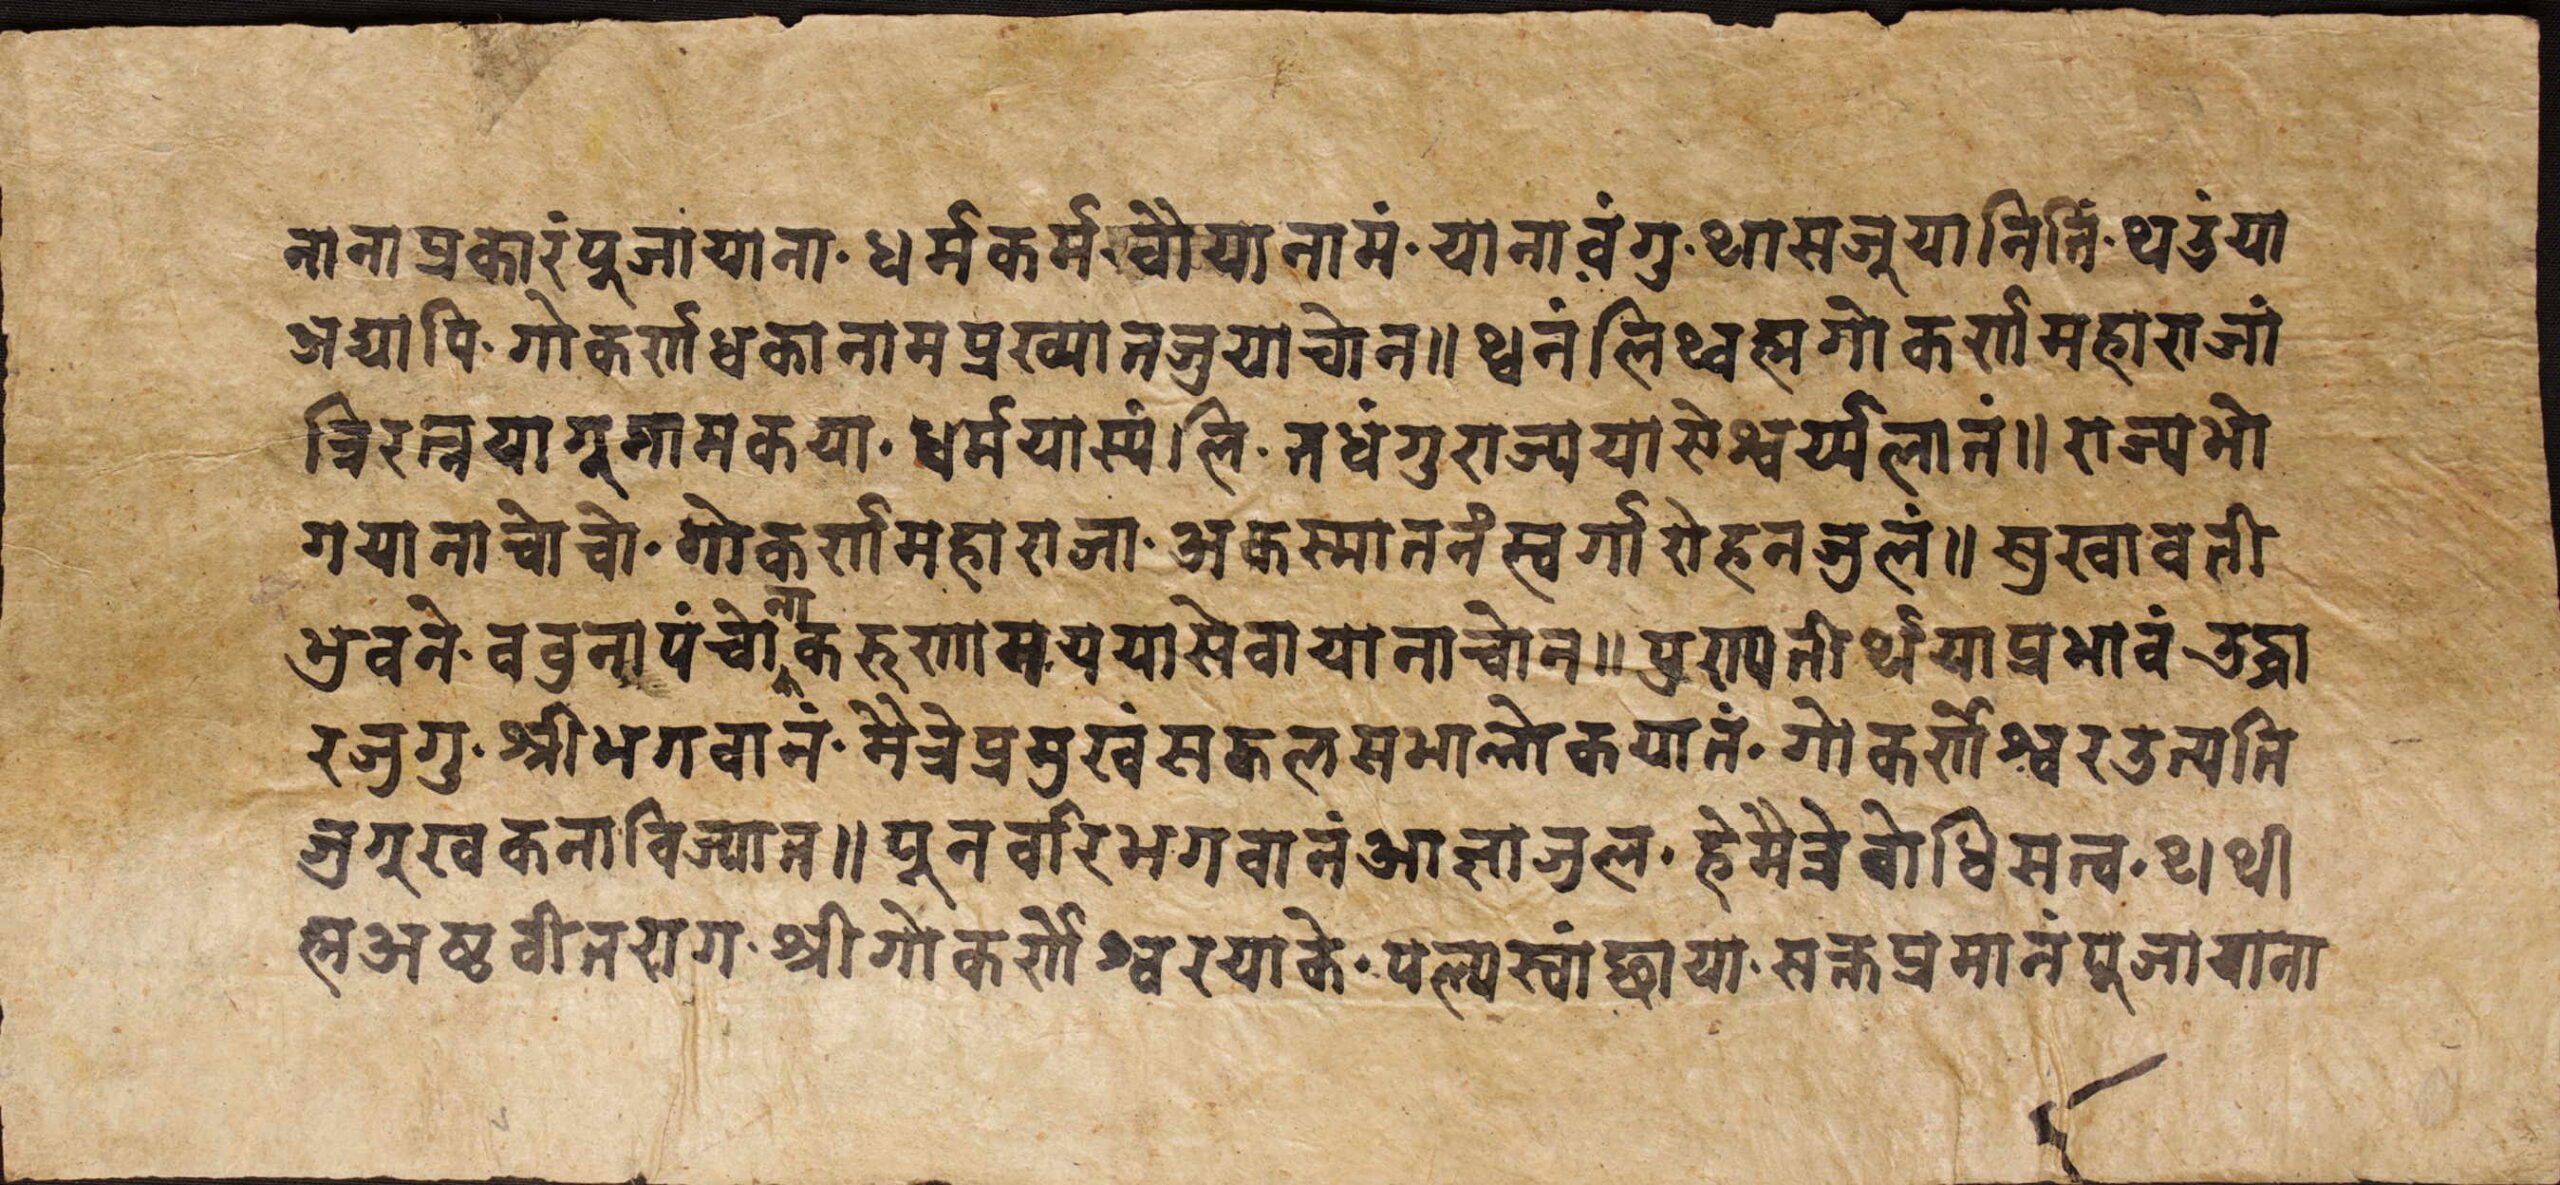 नानाप्रकारंपुजायाना· धर्मकर्म· चोयानामं· यानावंगु· थासजूयानिर्ति· थउंया
अद्यापि· गोकर्णधकानामप्रख्यातजुयाचोन॥ थ्वनंलिथ्वह्मगोकर्णमहाराजां
त्रिरत्नयागूनामकया· धर्मयास्यंलि· तधंगुराज्ययासेश्वर्य्यलानं॥ राज्यभो
गयानाचोचो· गोकर्णमहाराजा· अकस्मातनंस्वर्गारोहनजुलं॥ सुखावती
भुवने· वबुनापंचोनाकरुणामययासेवायानाचोन॥ पुण्यतीर्थयाप्रभावं उद्धा
रजुगु· श्रीभगवानं· मैत्रेप्रमुखंसकलसभालोकयातं· गोकर्णेश्वरउत्पति
जुगुखकनाविज्यात॥ पुनर्वारभगवानंआज्ञाजुल· हेमैत्रेबोधिसत्व· थ्थी
ह्मअष्टवीतराग· श्रीगोकर्णेश्वरयाके· पल्यस्वांछाया· सक्तप्रमानंपुजायाना